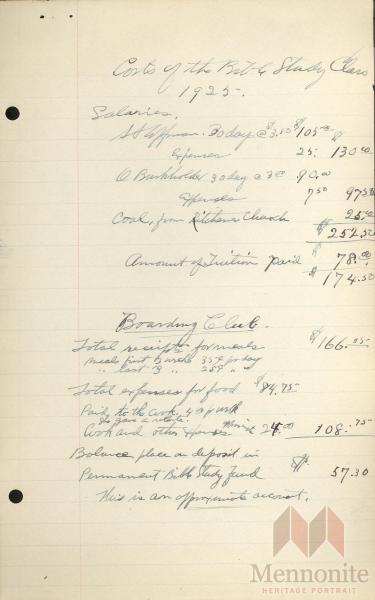 Costs of the Bible Study Class
1925.
Salaries.
S F Coffman. 30 day @ $3.50 $105.00 $
Expenses 25. 130.00
O Burkholder 30 day @ 3.00 90.00
Expenses 7.50 97.50
Coal, from Kitchener Church 25.00
$252.50
Amount of Tuition paid $ 78.00
$ 174.50
Boarding Club.
Total receipts for meals $166.05
Meals first 2 weeks 35¢ per day
" last 3 " 25¢ " "
Total expenses for food $84.75
Paid to the cook
Cook and other expenses 24.00 108.75
Balance place on deposit in
Permanent Bible Study Fund 57.30
This is an approximate account.
Mennonite
HERITAGE PORTRAIT